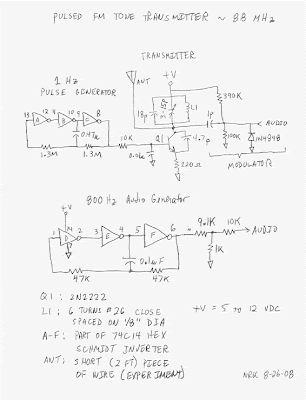 PULSED FM TONE TRANSMITTER ~ 88 MHz
TRANSMITTER
1 Hz
PULSE GENERATOR
ANT
+V
390K
18p
L1
1p
AUDIO
13 12 9 10 9 8
A B C
0.47u
1.3M 1.3M
10K
Q1
4.7p
100K
1N4848
0.01u
220Ω
MODULATOR
800 Hz Audio Generator
+V
1 14 2 3 4 5 6
D E F
7
0.1uF
47K 47K
9.1K 10K
AUDIO
1K
Q1 : 2N2222
L1 : 6 TURNS #26 CLOSE
SPACED ON 1/8" DIA
+V = 5 TO 12 VDC
A-F : PART OF 74C14 HEX
SCHMIDT INVERTER
ANT : SHORT (2 FT) PIECE
OF WIRE (EXPERIMENT)
8-26-08